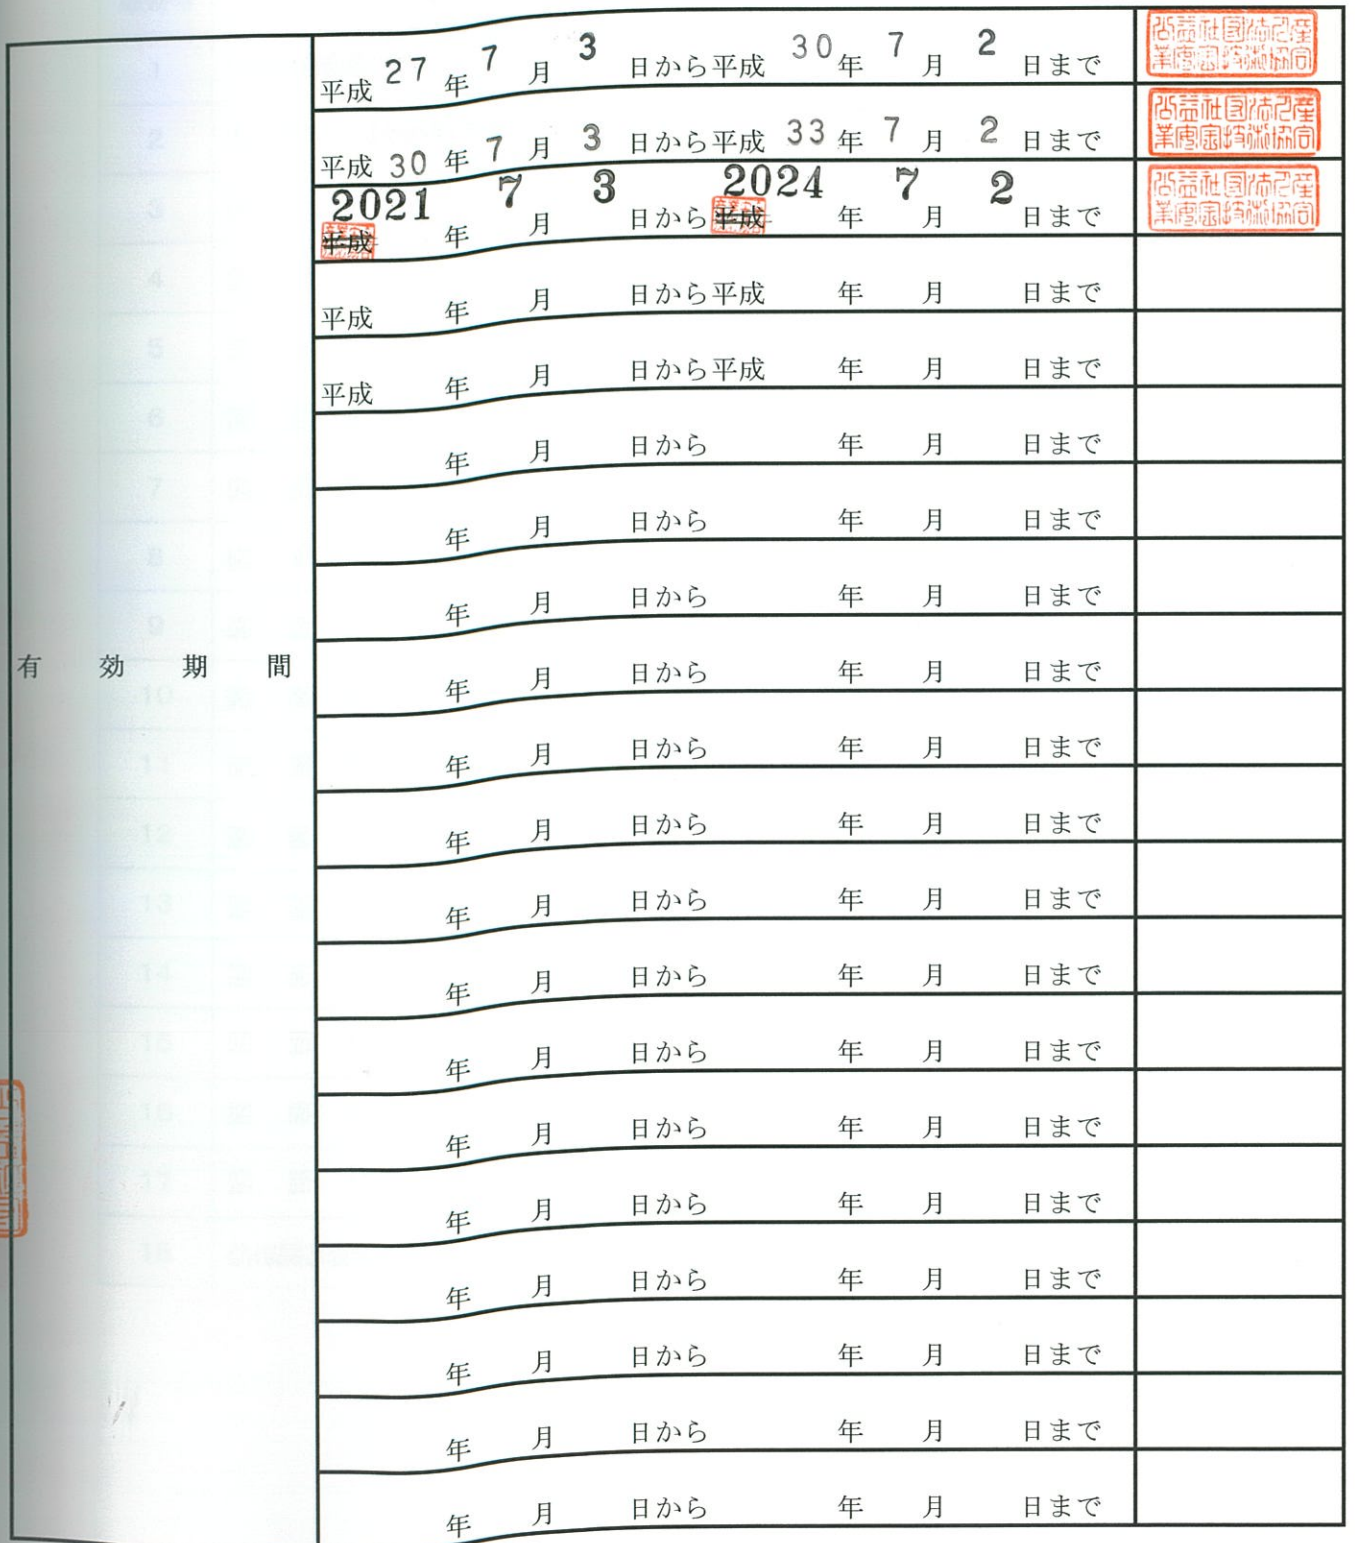 平成 27 年 7 月 3 日から平成 30 年 7 月 2 日まで
平成 30 年 7 月 3 日から平成 33 年 7 月 2 日まで
平成 2021 年 7 月 3 日から平成 2024 年 7 月 2 日まで
平成 年 月 日から平成 年 月 日まで
平成 年 月 日から平成 年 月 日まで
年 月 日から 年 月 日まで
年 月 日から 年 月 日まで
年 月 日から 年 月 日まで
有効期間
年 月 日から 年 月 日まで
年 月 日から 年 月 日まで
年 月 日から 年 月 日まで
年 月 日から 年 月 日まで
年 月 日から 年 月 日まで
年 月 日から 年 月 日まで
年 月 日から 年 月 日まで
年 月 日から 年 月 日まで
年 月 日から 年 月 日まで
年 月 日から 年 月 日まで
年 月 日から 年 月 日まで
年 月 日から 年 月 日まで